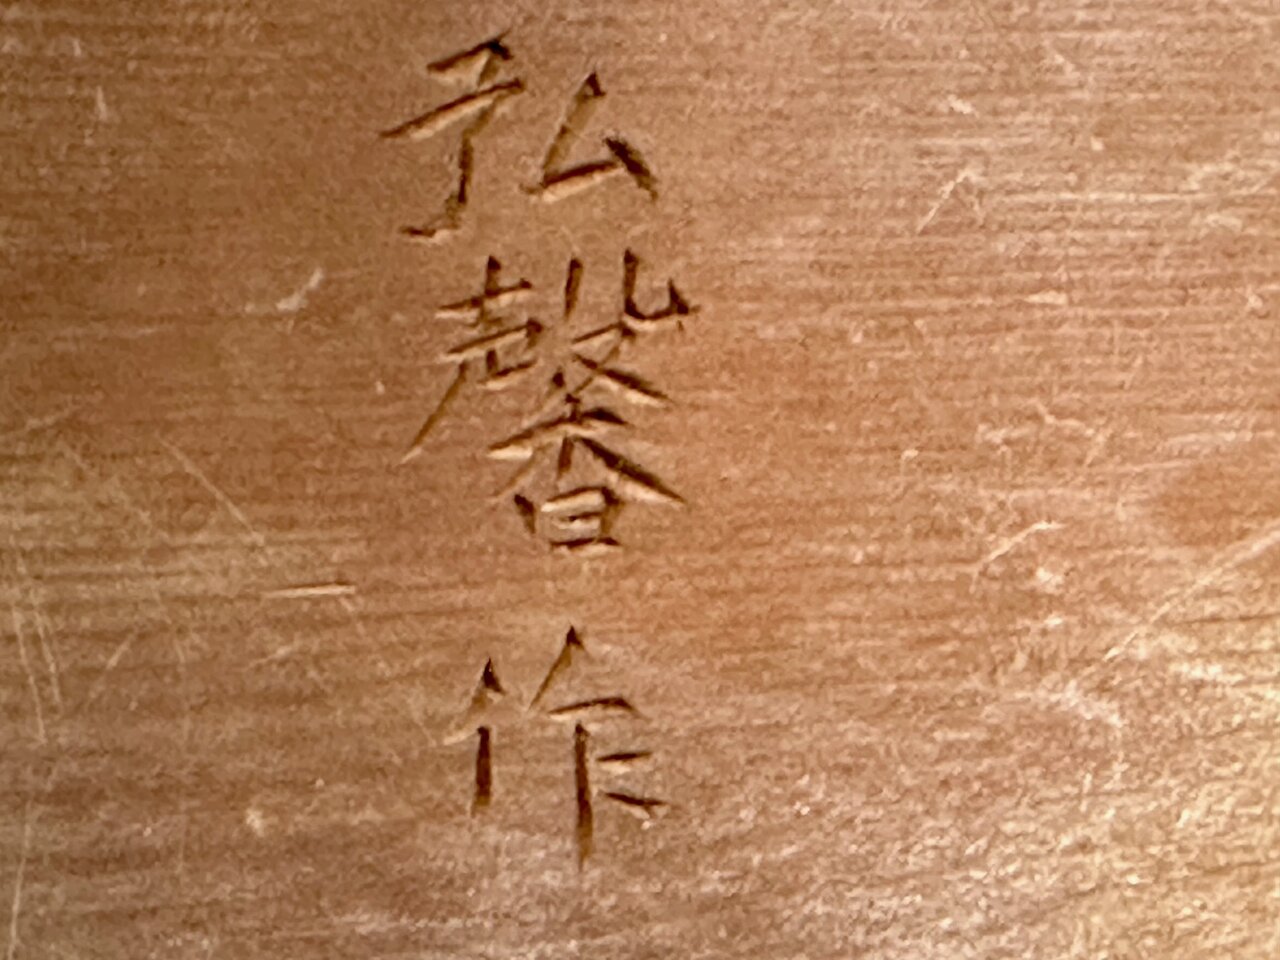 弘馨作